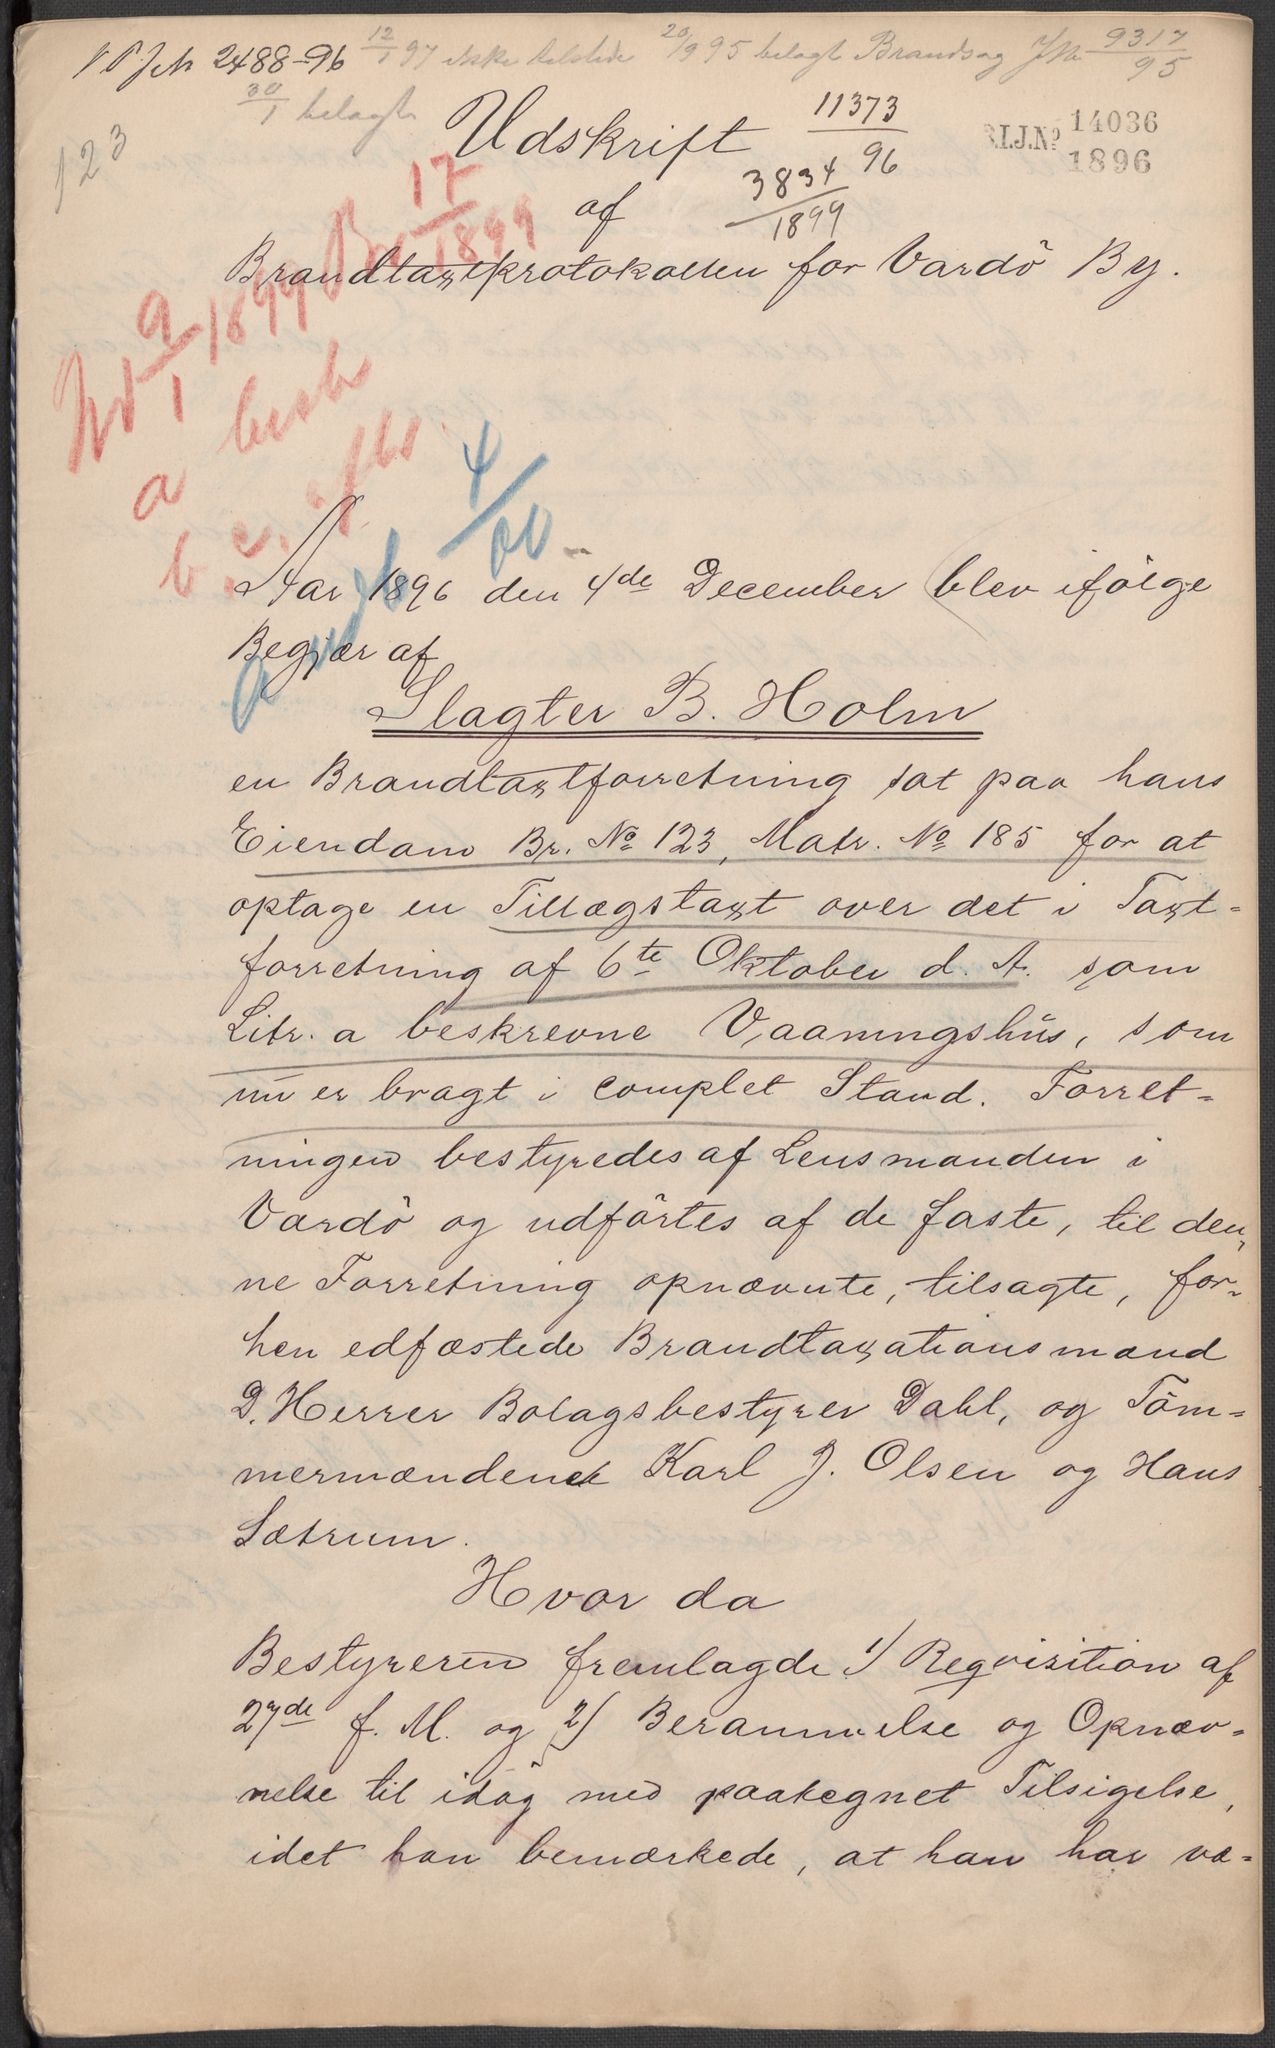 2488-96 12/1 97 ikke tilstede 20/9 95 belagt Brandsag JNo 9317/95
30/1 belagt
123
Udskrift
11373/96
B.I.J.No 14036
1896
af
3834/1899
17/1899
Brandtaxtprotokollen for Vardö By.
9/1 1899
a besk
b. c.
4/00
Aar 1896 den 4de December blev ifölge
Begjær af
Slagter B. Holm
en Brandtaxtforretning sat paa hans
Eiendom Br. No 123, Matr. No 185 for at
optage en Tillægstaxt over det i Taxt-
forretning af 6te Oktober d. A. som
Litr. a beskrevne Vaaningshus, som
nu er bragt i complet Stand. Forret-
ningen bestyredes af Lensmanden i
Vardö og udförtes af de faste, til den-
ne Forretning opnævnte, tilsagte, for-
hen edfæstede Brandtaxationsmænd
D. Herrer Bolagsbestyrer Dahl, og Töm-
mermændene Karl J. Olsen og Hans
Sætrum.
Hvor da
Bestyreren fremlagde 1/ Reqvisition af
27de f. M. og 2/ Berammelse og Opnæv-
nelse til idag med paategnet Tilsigelse,
idet han bemærkede, at han har væ-